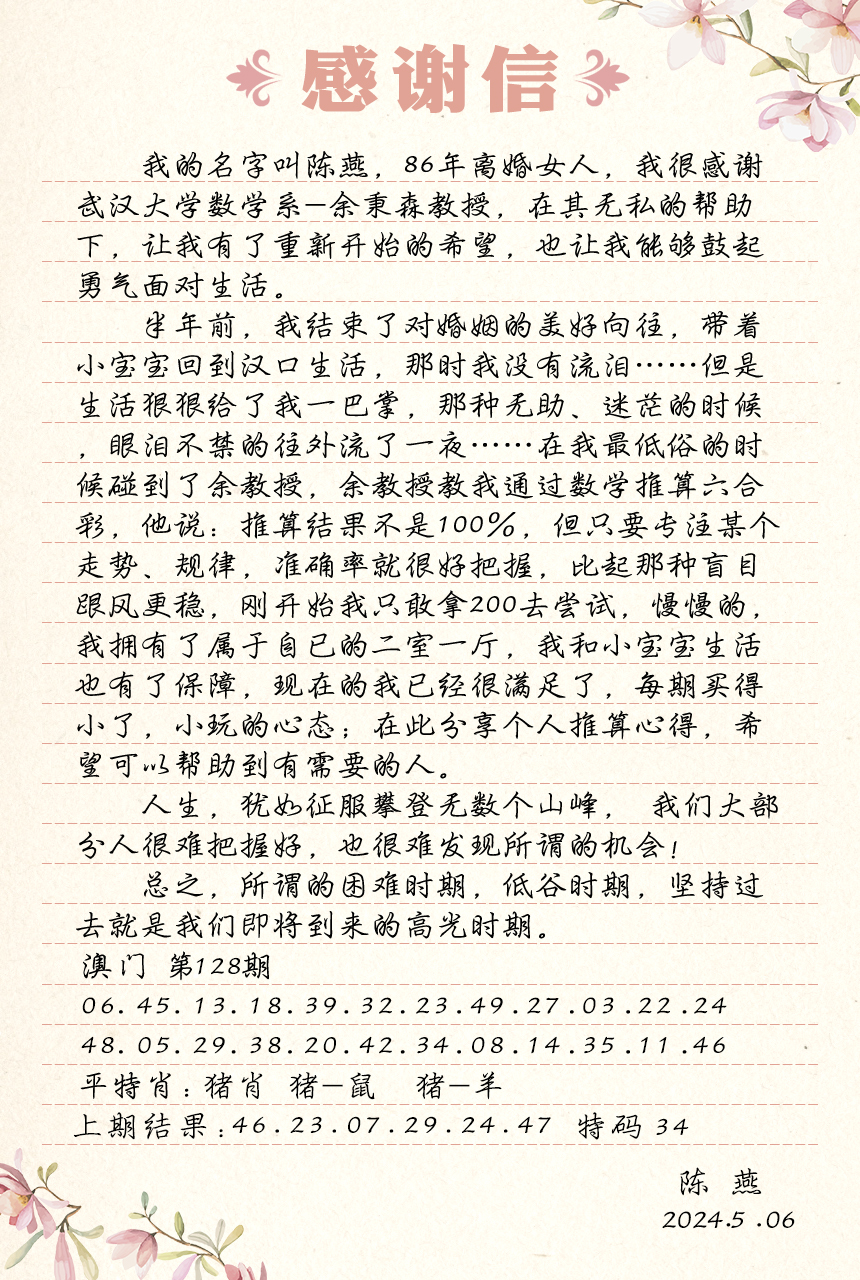 感谢信
我的名字叫陈燕，86年离婚女人，我很感谢
武汉大学数学系—余秉森教授，在其无私的帮助
下，让我有了重新开始的希望，也让我能够鼓起
勇气面对生活。
半年前，我结束了对婚姻的美好向往，带着
小宝宝回到汉口生活，那时我没有流泪……但是
生活狠狠给了我一巴掌，那种无助、迷茫的时候
，眼泪不禁的往外流了一夜……在我最低俗的时
候碰到了余教授，余教授教我通过数学推算六合
彩，他说：推算结果不是100%，但只要专注某个
走势、规律，准确率就很好把握，比起那种盲目
跟风更稳，刚开始我只敢拿200去尝试，慢慢的，
我拥有了属于自已的二室一厅，我和小宝宝生活
也有了保障，现在的我已经很满足了，每期买得
小了，小玩的心态；在此分享个人推算心得，希
望可以帮助到有需要的人。
人生，犹如征服攀登无数个山峰， 我们大部
分人很难把握好，也很难发现所谓的机会！
总之，所谓的困难时期，低谷时期，坚持过
去就是我们即将到来的高光时期。
澳门 第128期
06.45.13.18.39.32.23.49.27.03.22.24
48.05.29.38.20.42.34.08.14.35.11.46
平特肖：猪肖 猪—鼠 猪—羊
上期结果：46.23.07.29.24.47 特码 34
陈 燕
2024.5.06